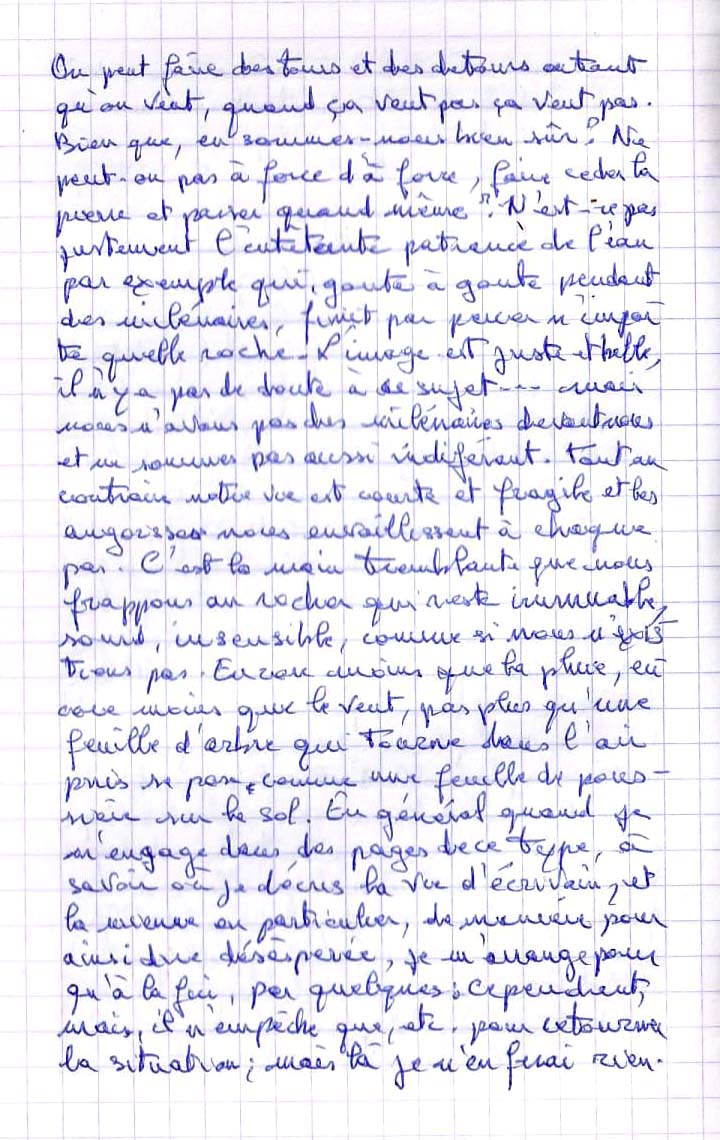 On peut faire des tours et des détours autant
qu'on veut, quand ça veut pas ça veut pas.
Bien que, en sommes-nous bien sûr? Ne
peut-on pas à force d'à force, faire céder la
pierre et passer quand même? N'est-ce pas
justement l'entêtante patience de l'eau
par exemple qui, goutte à goutte pendant
des millénaires, finit par percer n'impor
te quelle roche. L'image est juste et belle,
il n'y a pas de doute à ce sujet... mais
nous n'avons pas des millénaires devant nous
et ne sommes pas aussi indiférant. Tout au
contraire notre vie est courte et fragile et les
angoisses nous envaillessent à chaque
pas. C'est la main tremblante que nous
frappons au rocher qui reste immuable,
sourd, insensible, comme si nous n'exis
tions pas. Encore moins que la pluie, en
core moins que le vent, pas plus qu'une
feuille d'arbre qui tourne dans l'air
puis se pose comme une feuille de pous-
sière sur le sol. En général quand je
m'engage dans des pages de ce type, à
savoir où je décris la vie d'écrivain, et
la mienne en particulier, de manière pour
ainsi dire désespérée, je m'arrange pour
qu'à la fin, par quelques; cependant,
mais, il n'empêche que, etc. pour retourner
la situation; mais là je n'en ferai rien.